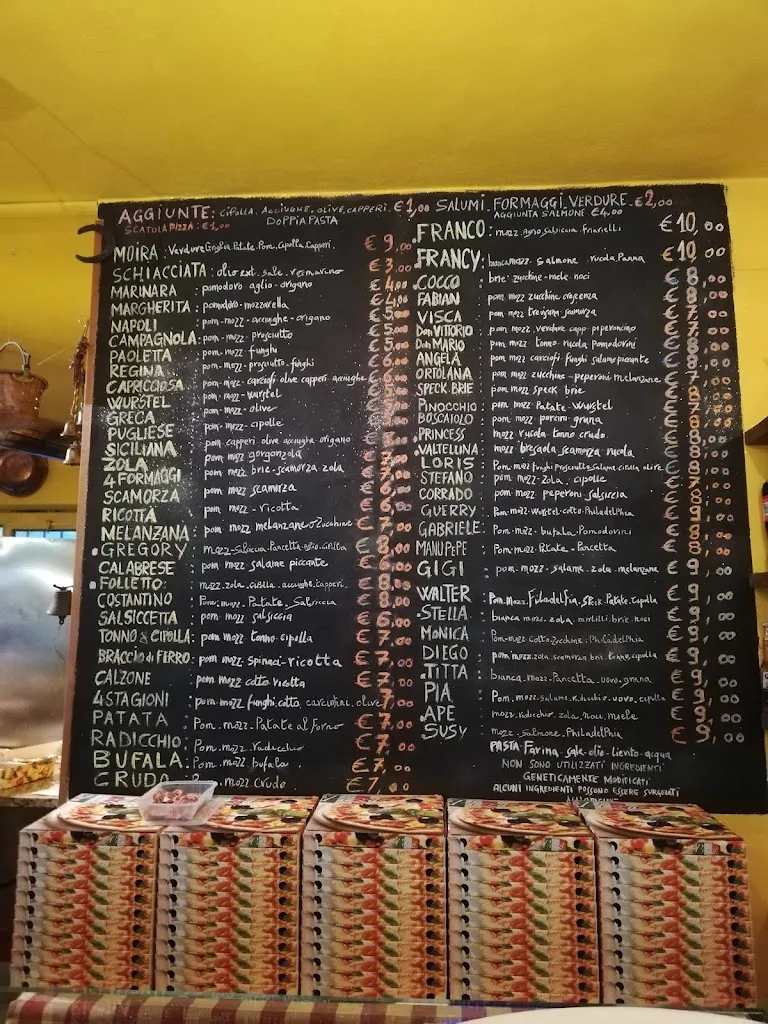 AGGIUNTE: CIPOLLA. ACCIUGHE. OLIVE. CAPPERI. € 1,00 SALUMI. FORMAGGI. VERDURE. €2,00
SCATOLA PIZZA: €1,00 DOPPIA PASTA AGGIUNTA SALMONE €4,00
MOIRA: Verdure Griglia. Patate. Pom. Cipolla. Capperi. € 9,00
SCHIACCIATA: olio ext. sale. rosmarino € 3,00
MARINARA pomodoro aglio-origano € 4,00
MARGHERITA: pomodoro-mozzarella € 4,00
NAPOLI pom-mozz-acciughe-origano
CAMPAGNOLA: pom-mozz-prosciutto
PAOLETTA pom-mozz funghi
REGINA pom-mozz-prosciutto-funghi
CAPRICCIOSA pom-mozz-carciofi olive capperi acciughe
WURSTEL pom-mozz-wurstel
GRECA pom-mozz-olive
PUGLIESE pom-mozz-cipolle
SICILIANA pom capperi olive acciughe origano
ZOLA pom-mozz gorgonzola
4 FORMAGGI pom mozz brie-scamorza zola
SCAMORZA pom mozz scamorza
RICOTTA pom-mozz-ricotta
MELANZANA: pom mozz melanzane o Zucchine
GREGORY: mozz-Salsiccia-Pancetta-aglio-cipolla € 8,00
CALABRESE: pom mozz salame piccante
FOLLETTO: mozz. zola. cipolla. acciughe. Capperi. € 8,00
COSTANTINO: Pom. mozz. Patate. Salsiccia € 8,00
SALSICCETTA: pom mozz salsiccia € 6,00
TONNO & CIPOLLA: pom mozz tonno-cipolla € 7,00
BRACCIO di FERRO: pom mozz spinaci-ricotta € 7,00
CALZONE pom mozz cotto ricotta € 7,00
4 STAGIONI: pom mozz, funghi, cotto, carciofini, olive € 7,00
PATATA: Pom-mozz-Patate al forno € 7,00
RADICCHIO: Pom. mozz. radicchio € 7,00
BUFALA: Pom. mozz. bufala € 7,00
CRUDO mozz. Crudo € 7,00
FRANCO: mozz. Salsiccia. friarielli € 10,00
FRANCY: bianca mozz. Salmone. rucola. Panna € 10,00
COCCO: brie-zucchine-mele-noci € 8,00
FABIAN: pom mozz zucchine crescenza
VISCA: pom mozz trevigiana scamorza
Don VITTORIO: pom mozz. verdure capp. peperoncino
Don MARIO: pom mozz tonno rucola pomodorini
ANGELA: pom mozz carciofi funghi salame piccante
ORTOLANA: pom mozz zucchine-peperoni melanzane
SPECK BRIE: pom mozz speck brie
PINOCCHIO: pom mozz Patate Wurstel
BOSCAIOLO: pom mozz porcini grana
PRINCESS: mozz rucola tonno crudo
VALTELLINA: mozz bresaola scamorza rucola
LORIS: Pom mozz funghi prosciutto salame cipolla olive
STEFANO: pom-mozz-Zola. cipolle
CORRADO: pom mozz peperoni salsiccia € 8,00
GUERRY: Pom-mozz-Wurstel-cotto-Philadelphia € 9,00
GABRIELE: Pom-mozz-bufala-Pomodorini € 8,00
MANU PEPE: Pom-mozz-Patate-Pancetta € 8,00
GIGI: pom-mozz-salame. zola. melanzane € 9,00
WALTER: Pom. Mozz. Filadelfia. Speck. Patate. Cipolla € 9,00
STELLA: bianca mozz. zola. mirtilli. brie. noci € 9,00
MONICA: Pom-mozz-cotto-Zucchine-Philadelphia € 9,00
DIEGO: pom mozz. zola. scamorza brie. tonno. cipolla € 9,00
TITTA: bianca. mozz. Pancetta. uovo. grana € 9,00
PIA: Pom. mozz. salame. radicchio-uovo. cipolla € 9,00
APE: mozz. radicchio. zola. noci. miele € 9,00
SUSY: mozz-Salmone. Philadelphia € 9,00
PASTA Farina-sale-olio-lievito-acqua
NON SONO UTILIZZATI INGREDIENTI
GENETICAMENTE MODIFICATI
ALCUNI INGREDIENTI POSSONO ESSERE SURGELATI
ALL'ORIGINE